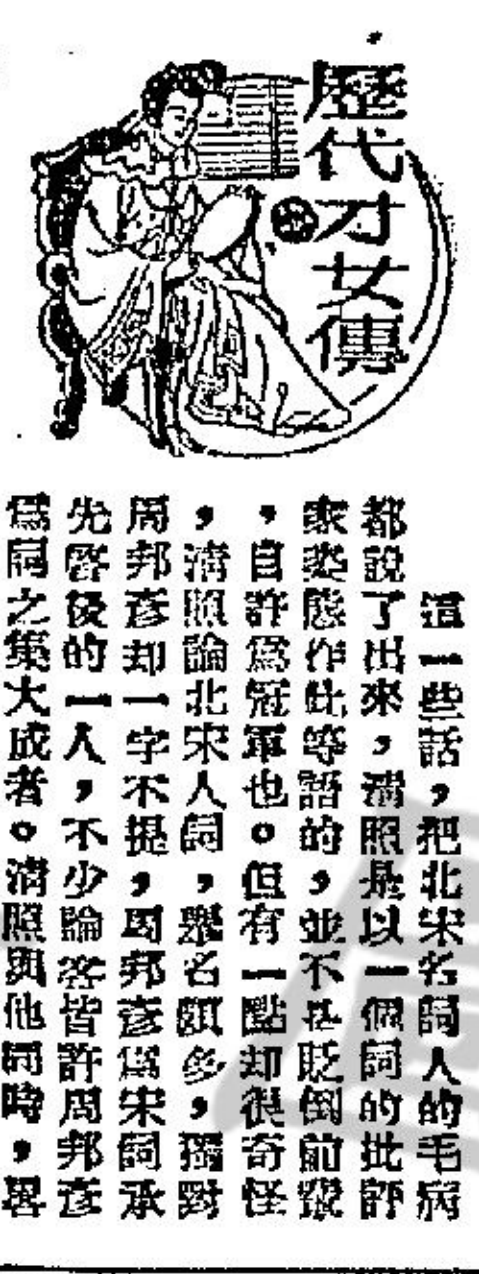 歷代才女傳
這一些話，把北宋名詞人的毛病
都說了出來，清照是以一個詞的批評
家姿態作此等語的，並不是貶倒前輩
，自許爲冠軍也。但有一點却很奇怪
，清照論北宋人詞，舉名頗多，獨對
周邦彥却一字不提，周邦彥爲宋詞承
先啓後的一人，不少論客皆許周邦彥
爲詞之集大成者。清照與他同時，畧